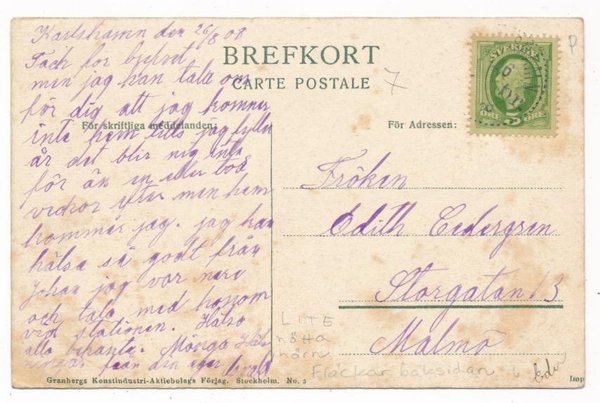 Karlshamn den 26/8 08
Tack för brefvet
men jag kan tala om
för dig att jag kommer
inte hem tills jag fyller
år det blir nog inte
för än en eller två
veckor efter men hem
kommer jag. jag kan
hälsa så godt från
Johan jag var nere
och tala med honom
vid stationen. Hälsa
alla bekanta. Många Häls
ningar från din
BREFKORT
CARTE POSTALE
7
P
SVERIGE
5
ÖRE
För skriftliga meddelanden:
För Adressen:
Fröken
Edith Cedergren
Storgatan 13
Malmö
LITE
nötta
hörn
Fläckar baksidan
Granbergs Konstindustri-Aktiebolags Förlag. Stockholm. No. 3
Imp